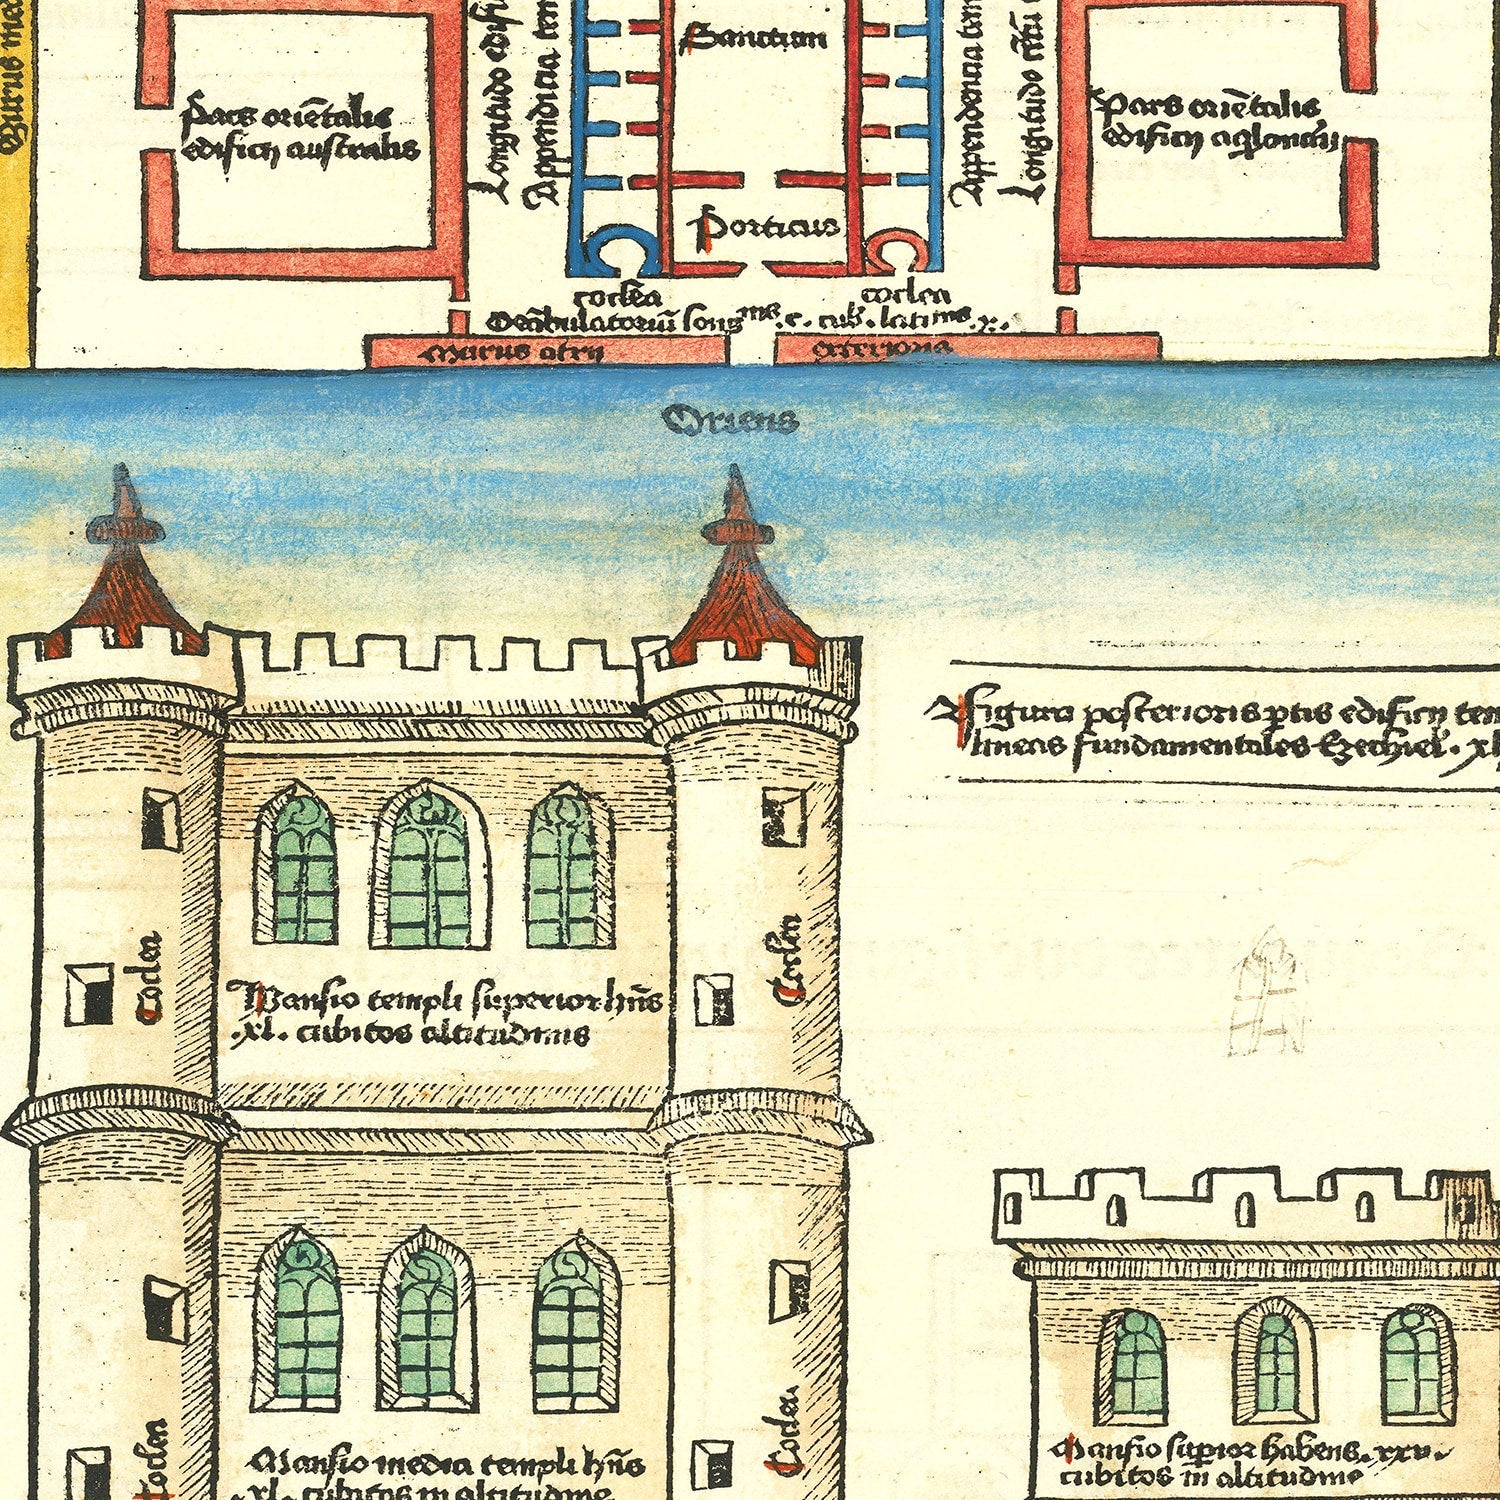 Murus
Longitudo edifi
Appendicia tem
Sanctum
Appendencia tem
Longitudo
Pars oriētalis
edificij australis
Pars oriētalis
edificij aqlonarij
Porticus
coclea
coclea
Deābulatoriū long c. cub. latitu x.
Murus atrij
exterioris
Oriens
Figura posterioris ptis edificij tem
lineas fundamentales Ezechiel. xl
Coclea
Mansio templi superior hñs
.xl. cubitos altitudinis
Coclea
Coclea
Mansio media templi hñs
.xl. cubitos in altitudine
Coclea
Mansio superior habens .xxv.
cubitos in altitudine